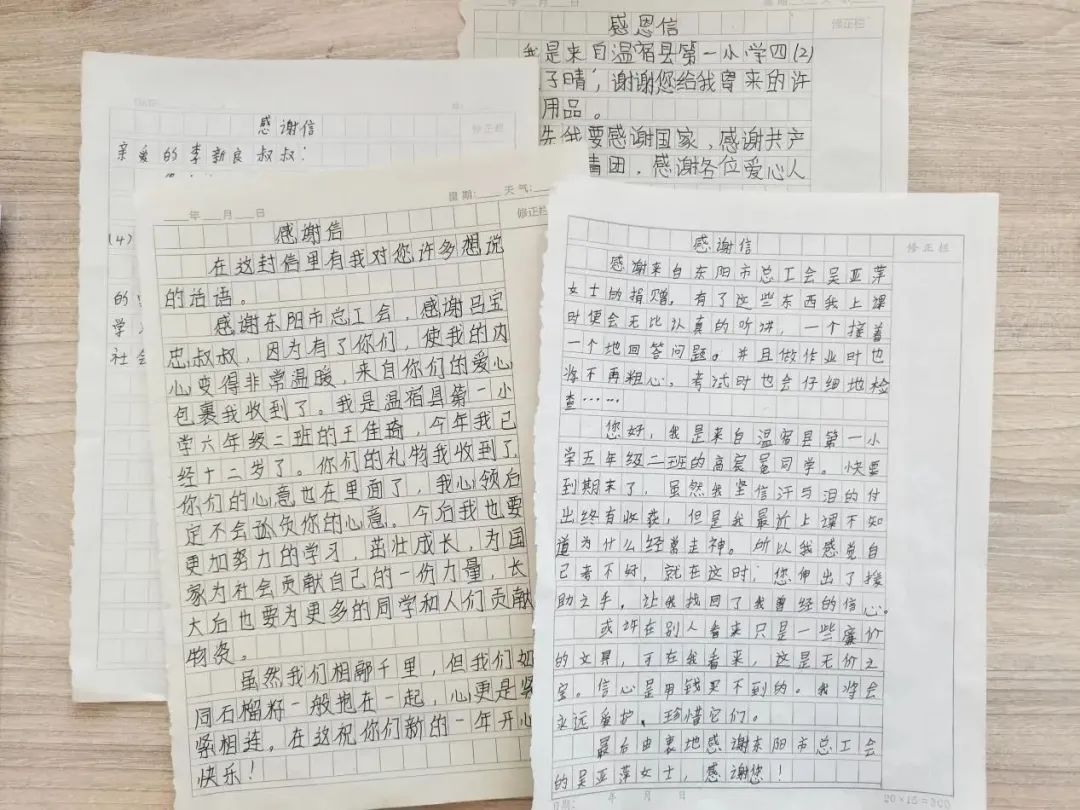 年 月 日
感恩信
修正栏
我是来自温宿县第一小学四(2)
子晴,谢谢您给我寄来的许
用品。
先我要感谢国家,感谢共产
青团,感谢各位爱心人
感谢信
修正栏
亲爱的李新良叔叔:
(4)
的
学
社会
年 月 日
星期: 天气:
修正栏
感谢信
在这封信里有我对您许多想说
的话语。
感谢东阳市总工会,感谢吕宝
忠叔叔,因为有了你们,使我的内
心变得非常温暖,来自你们的爱心
包裹我收到了。我是温宿县第一小
学六年级二班的王佳琦,今年我已
经十二岁了。你们的礼物我收到了,
你们的心意也在里面了,我心领后
定不会孤负你的心意。今后我也要
更加努力的学习,茁壮成长,为国
家为社会贡献自己的一份力量,长
大后也要为更多的同学和人们贡献
物资。
虽然我们相鄣千里,但我们如
同石榴籽一般抱在一起,心更是紧
紧相连。在这祝你们新的一年开心
快乐!
感谢信
修正栏
感谢来自东阳市总工会吴亚萍
女士的捐赠。有了这些东西我上课
时便会无比认真的听讲,一个接着
一个地回答问题。并且做作业时也
将不再粗心,考试时也会仔细地检
查……
您好,我是来自温宿县第一小
学五年级二班的高宸 同学。快要
到期末了,虽然我坚信汗与泪的付
出终有收获,但是我最近上课不知
道为什么经常走神。所以我感觉自
己考不好,就在这时,您伸出了援
助之手,让我找回了我曾经的信心。
或许在别人看来只是一些廉价
的文具,可在我看来,这是无价之
宝。信心是用钱买不到的。我将会
永远爱护、珍惜它们。
最后由衷地感谢东阳市总工会
的吴亚萍女士,感谢您!
日期: 年 月 日
20×15=300